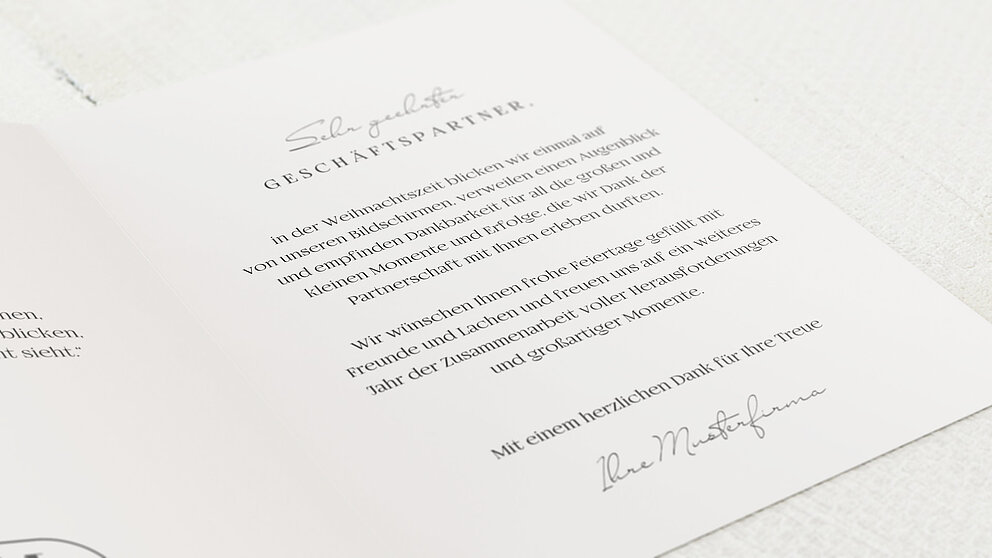 nen.
blicken.
nt sieht.“
Sehr geehrter
GESCHÄFTSPARTNER,
in der Weihnachtszeit blicken wir einmal auf
von unseren Bildschirmen, verweilen einen Augenblick
und empfinden Dankbarkeit für all die großen und
kleinen Momente und Erfolge, die wir Dank der
Partnerschaft mit Ihnen erleben durften.
Wir wünschen Ihnen frohe Feiertage gefüllt mit
Freunde und Lachen und freuen uns auf ein weiteres
Jahr der Zusammenarbeit voller Herausforderungen
und großartiger Momente.
Mit einem herzlichen Dank für Ihre Treue
Ihre Musterfirma